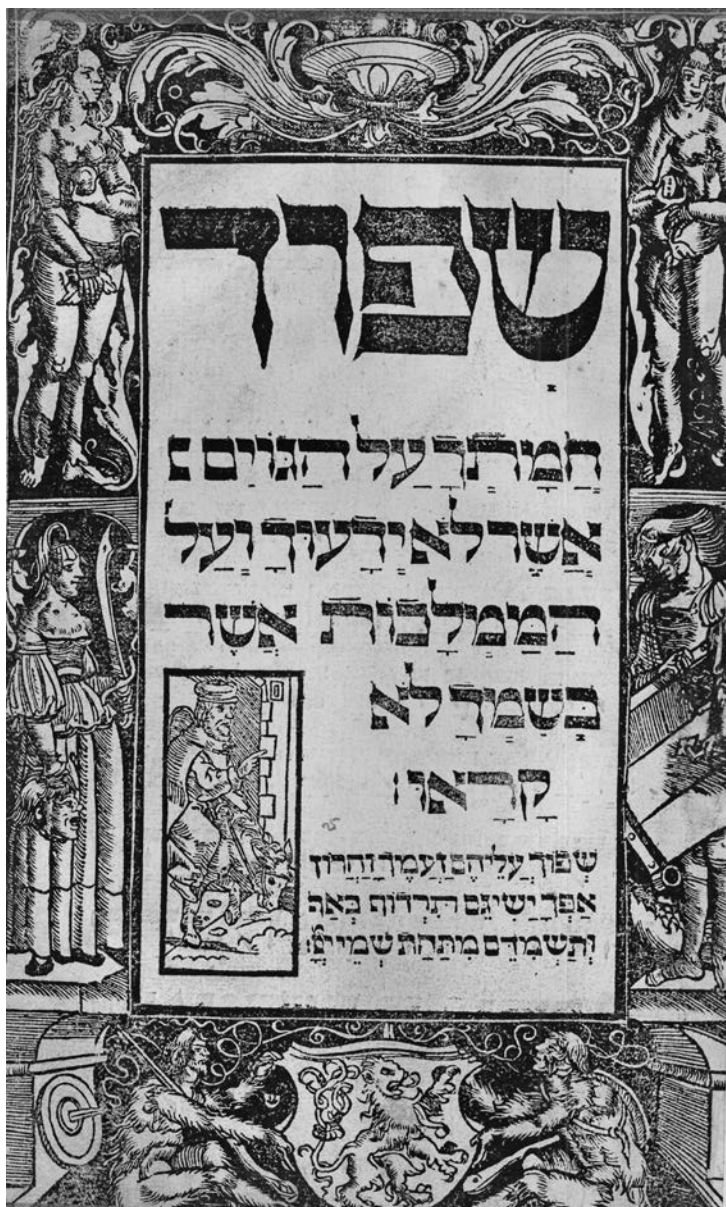 שפוך
חֲמָתְךָ עַל הַגּוֹיִם :
אֲשֶׁר לֹא יְדָעוּךָ וְעַל
הַמַּמְלָכוֹת אֲשֶׁר
בְּשִׁמְךָ לֹא
קָרָאוּ :
שְׁפוֹךְ עֲלֵיהֶם זַעְמֶךָ וַחֲרוֹן
אַפְּךָ יַשִּׂיגֵם תִּרְדּוֹף בְּאַף
וְתַשְׁמִדֵם מִתַּחַת שְׁמֵי יְיָ :